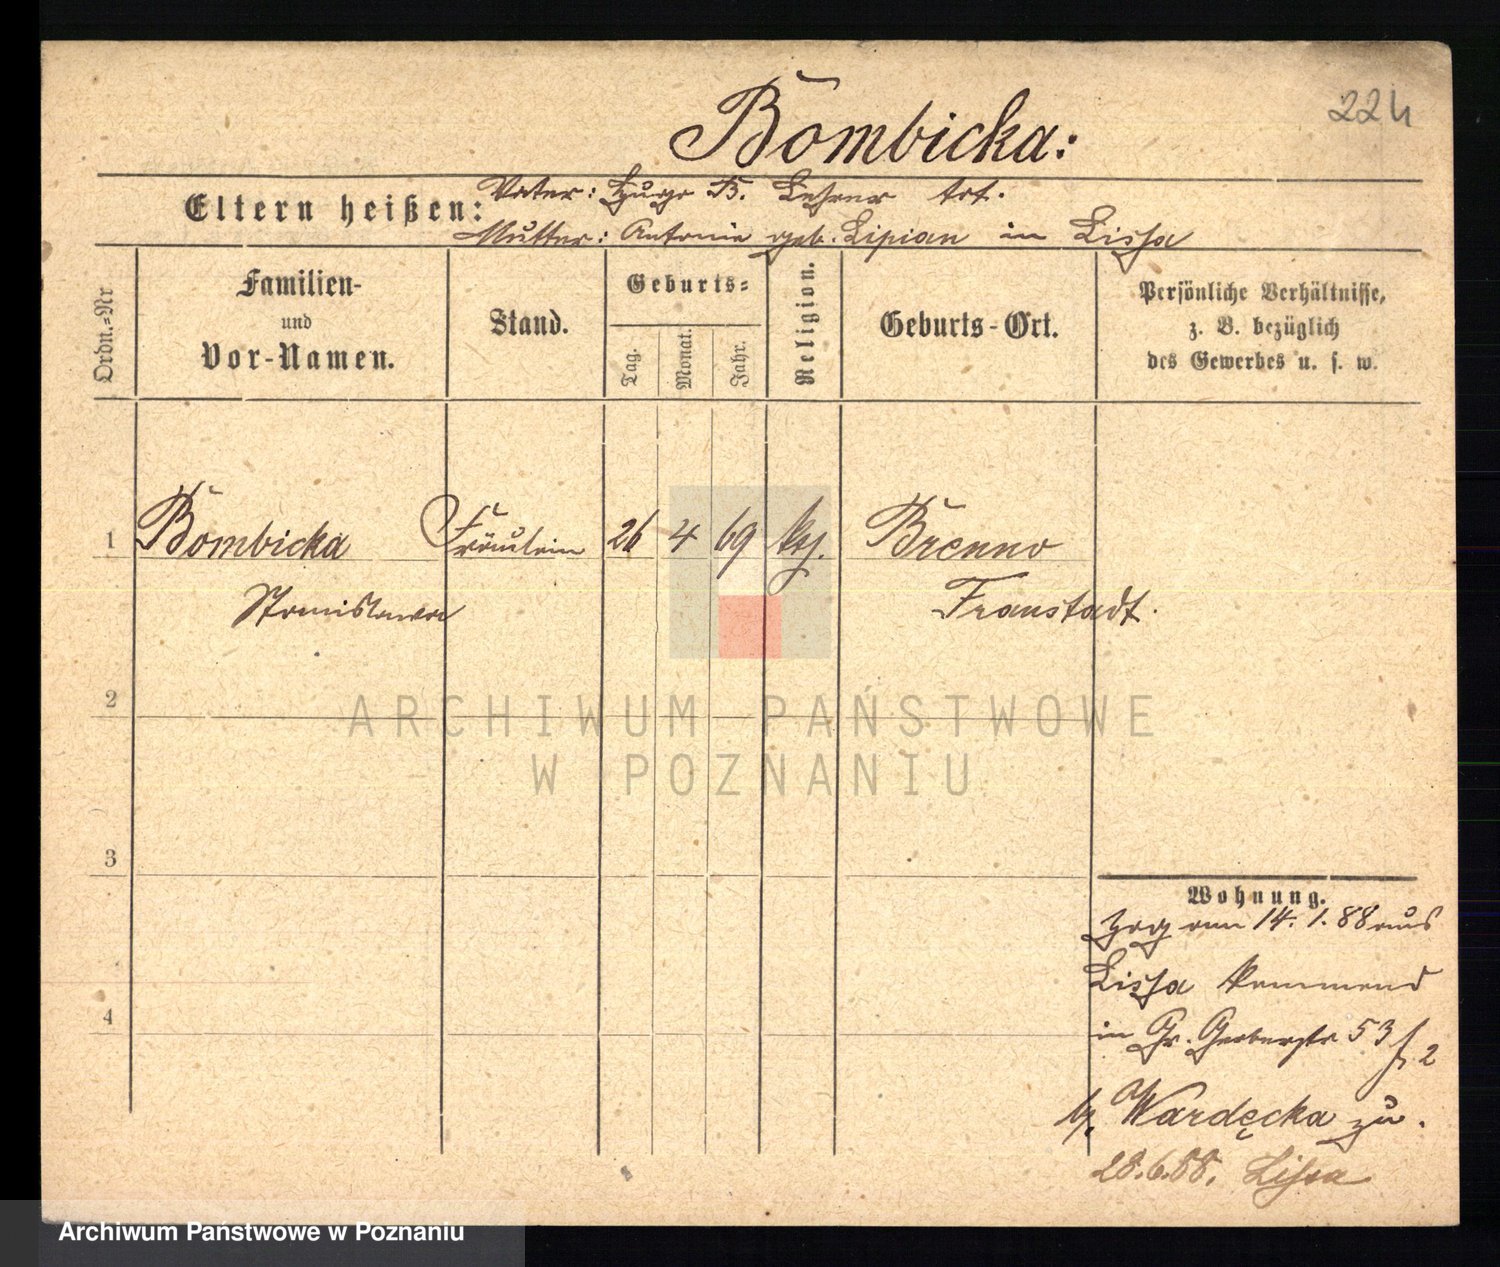 Bombicka:
224
Vater: Hugo B. Lehrer tot.
Eltern heißen:
Mutter: Antonie geb. Lipian in Lissa
Ordn.=Nr
Familien- und Vor-Namen.
Stand.
Geburts=
Tag.
Monat.
Jahr.
Religion.
Geburts-Ort.
Persönliche Verhältnisse,
z. B. bezüglich
des Gewerbes u. s. w.
1 Bombicka Fräulein 26 4 69 Brenno
Stanislawa Fraustadt.
2
ARCHIWUM PAŃSTWOWE
W POZNANIU
3
4
Wohnung.
Zog am 14. 1. 88 aus
Lissa kommend
in Gr. Gerberstr 53
2
b. Wardęcka zu.
28.6.88. Lissa
Archiwum Państwowe w Poznaniu